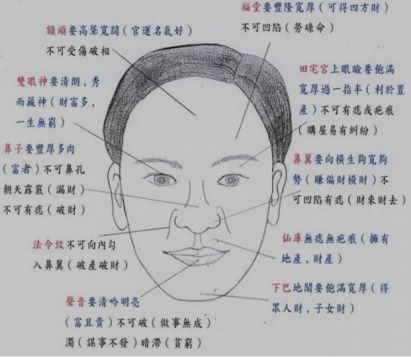 額頭要高聳寬闊(官運名氣好)
不可受傷破相
雙眼神要清朗,秀
而藏神(財富多,
一生無窮)
鼻子要豐厚多肉
(富者)不可鼻孔
朝天露竅(漏財)
不可有痣(破財)
法令紋不可向內勾
入鼻翼(破產破財)
聲音要清吟明亮
(富且貴)不可破(做事無成)
濁(謀事不發)暗滯(貧窮)
福堂要豐隆寬厚(可得四方財)
不可凹陷(勞碌命)
田宅宮上眼瞼要飽滿
寬厚過一指半(利於置
產)不可有痣或疤痕
(購屋易有糾紛)
鼻翼要向橫生夠寬夠
勢(賺偏財橫財)不
可凹陷有痣(財來財去)
仙庫無痣無疤痕(擁有
地產,財產)
下巴地閣要飽滿寬厚(得
眾人財,子女財)